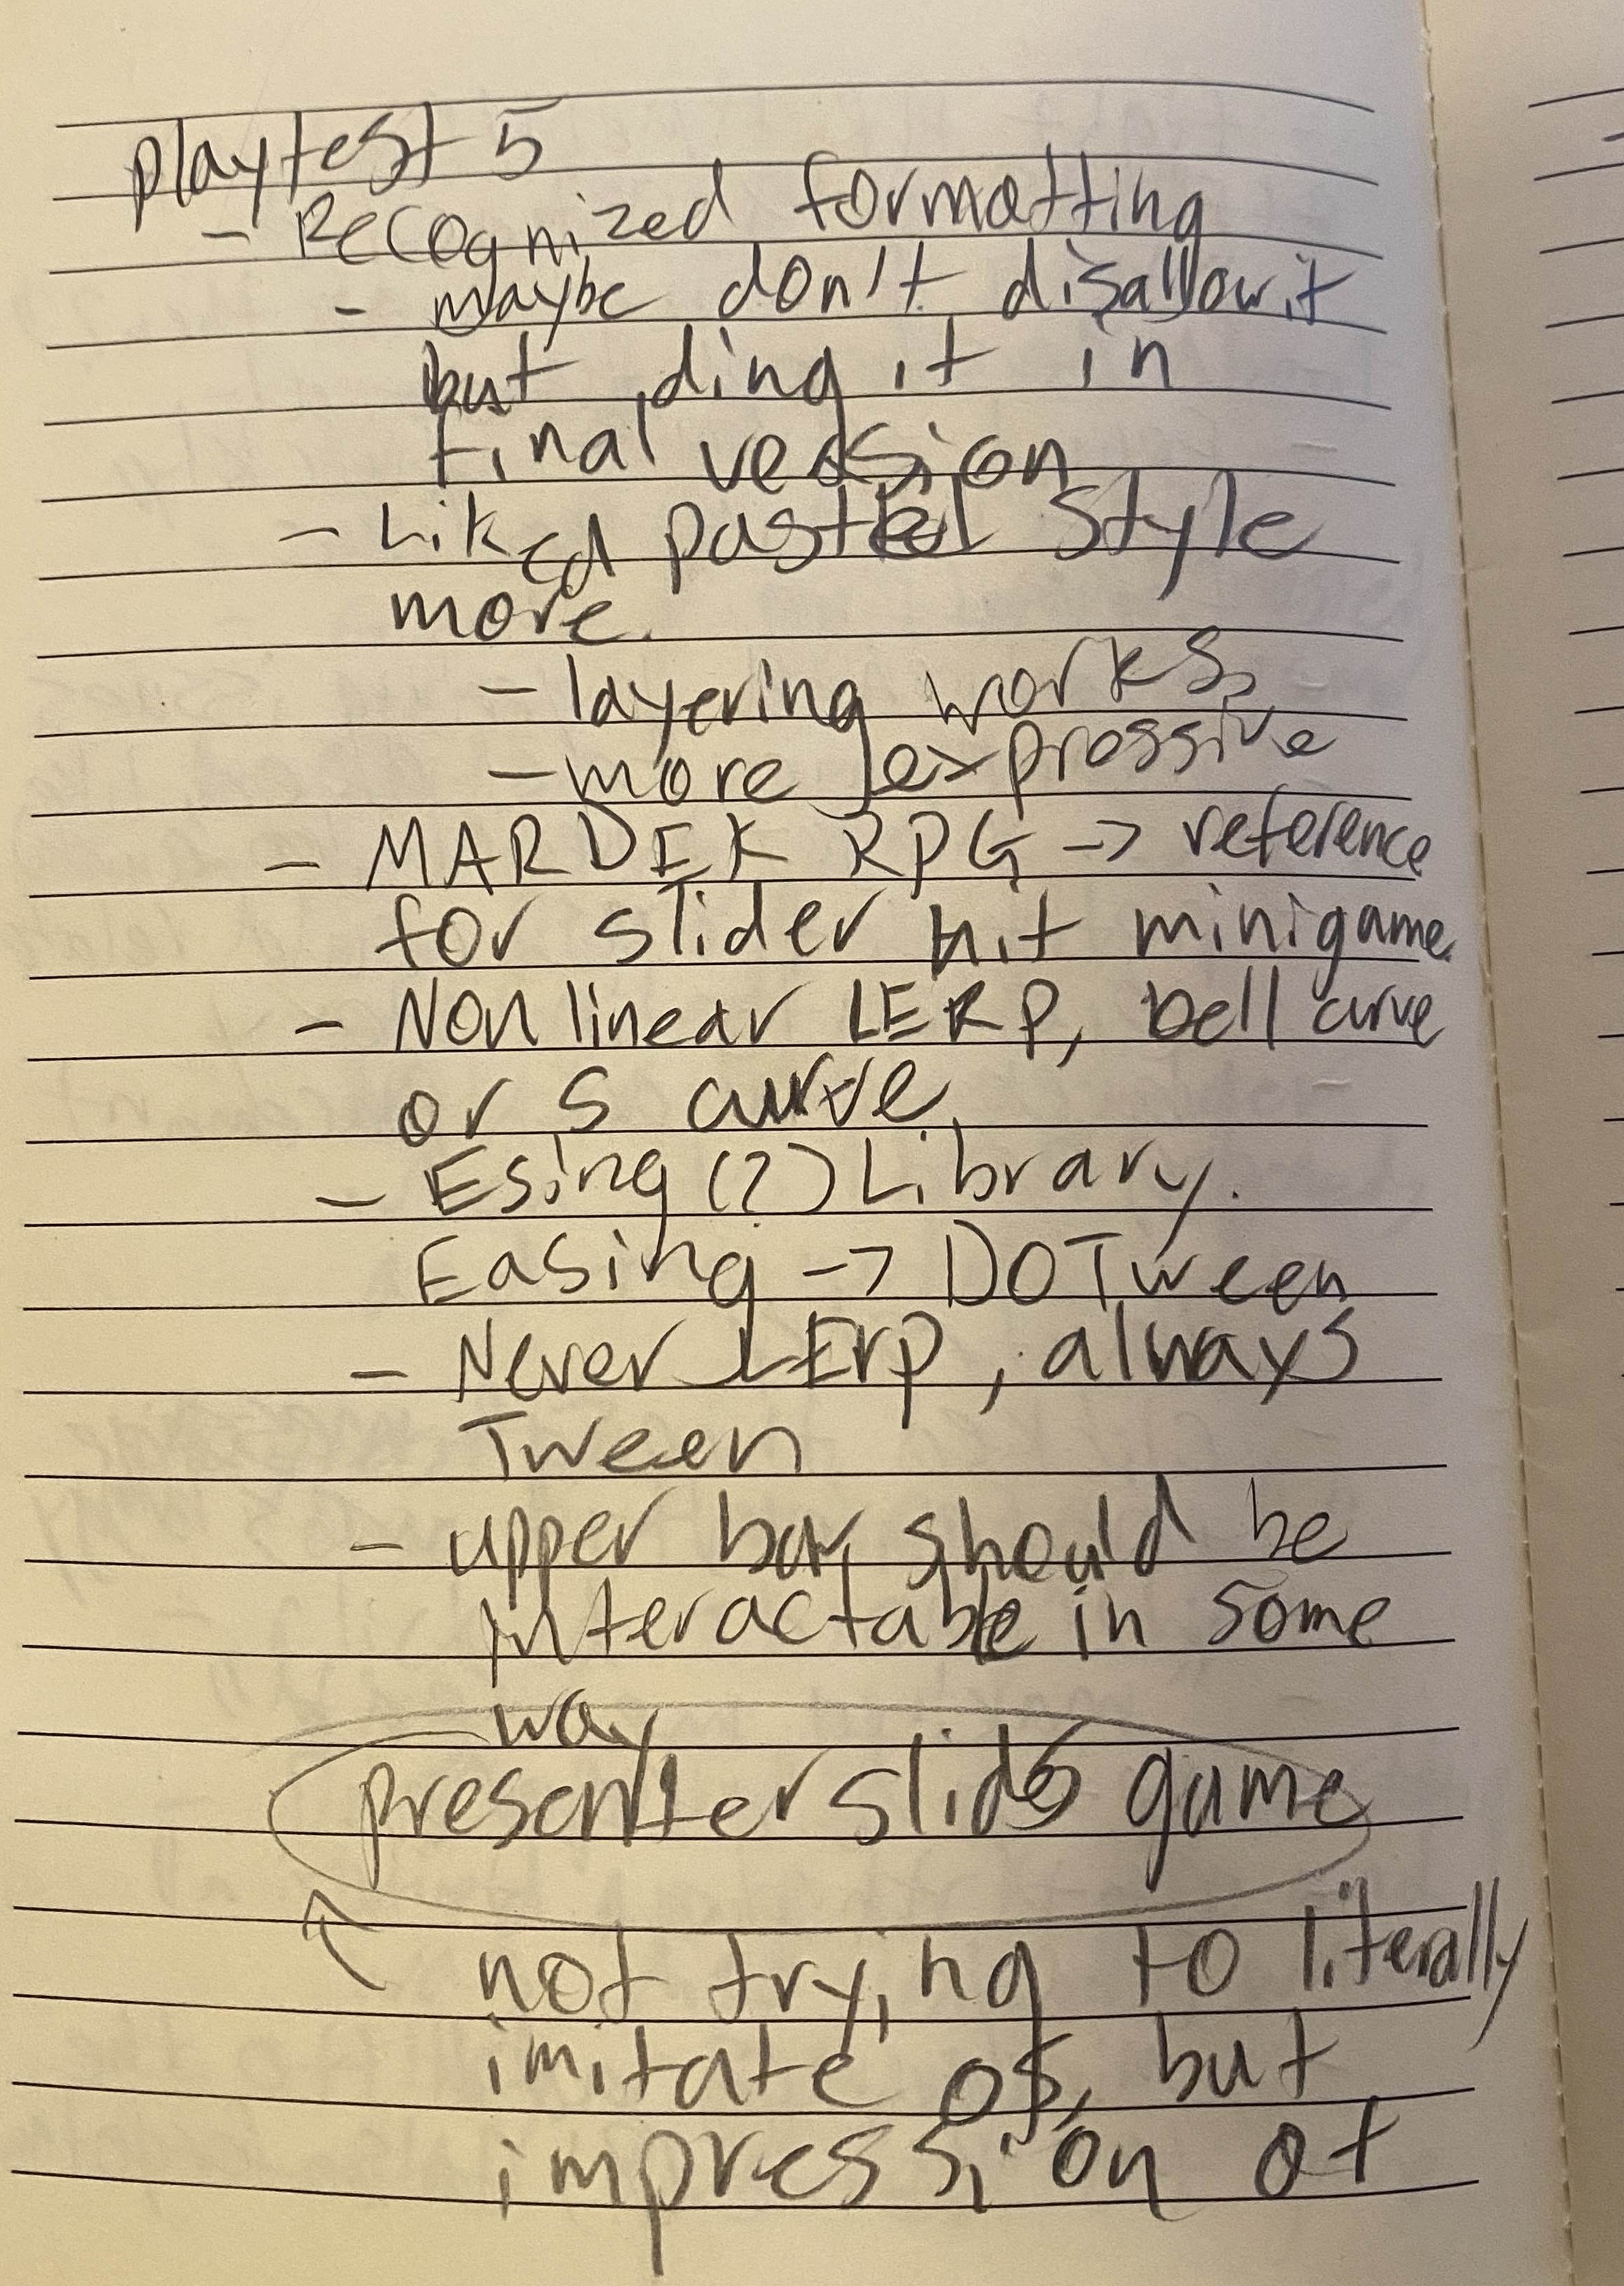 playtest 5
- Recognized formatting
- maybe don't disallow it
but ding it in
final version
- Liked pastel style
more.
- layering works,
- more expressive
- MARDEK RPG -> reference
for slider hit minigame.
- Non linear LERP, bell curve
or S curve
- Esing (?) Library.
Easing -> DOTween
- Never LErp, always
Tween
- upper bar should be
interactable in some
way
presenter slides game
not trying to literally
imitate os, but
impression of